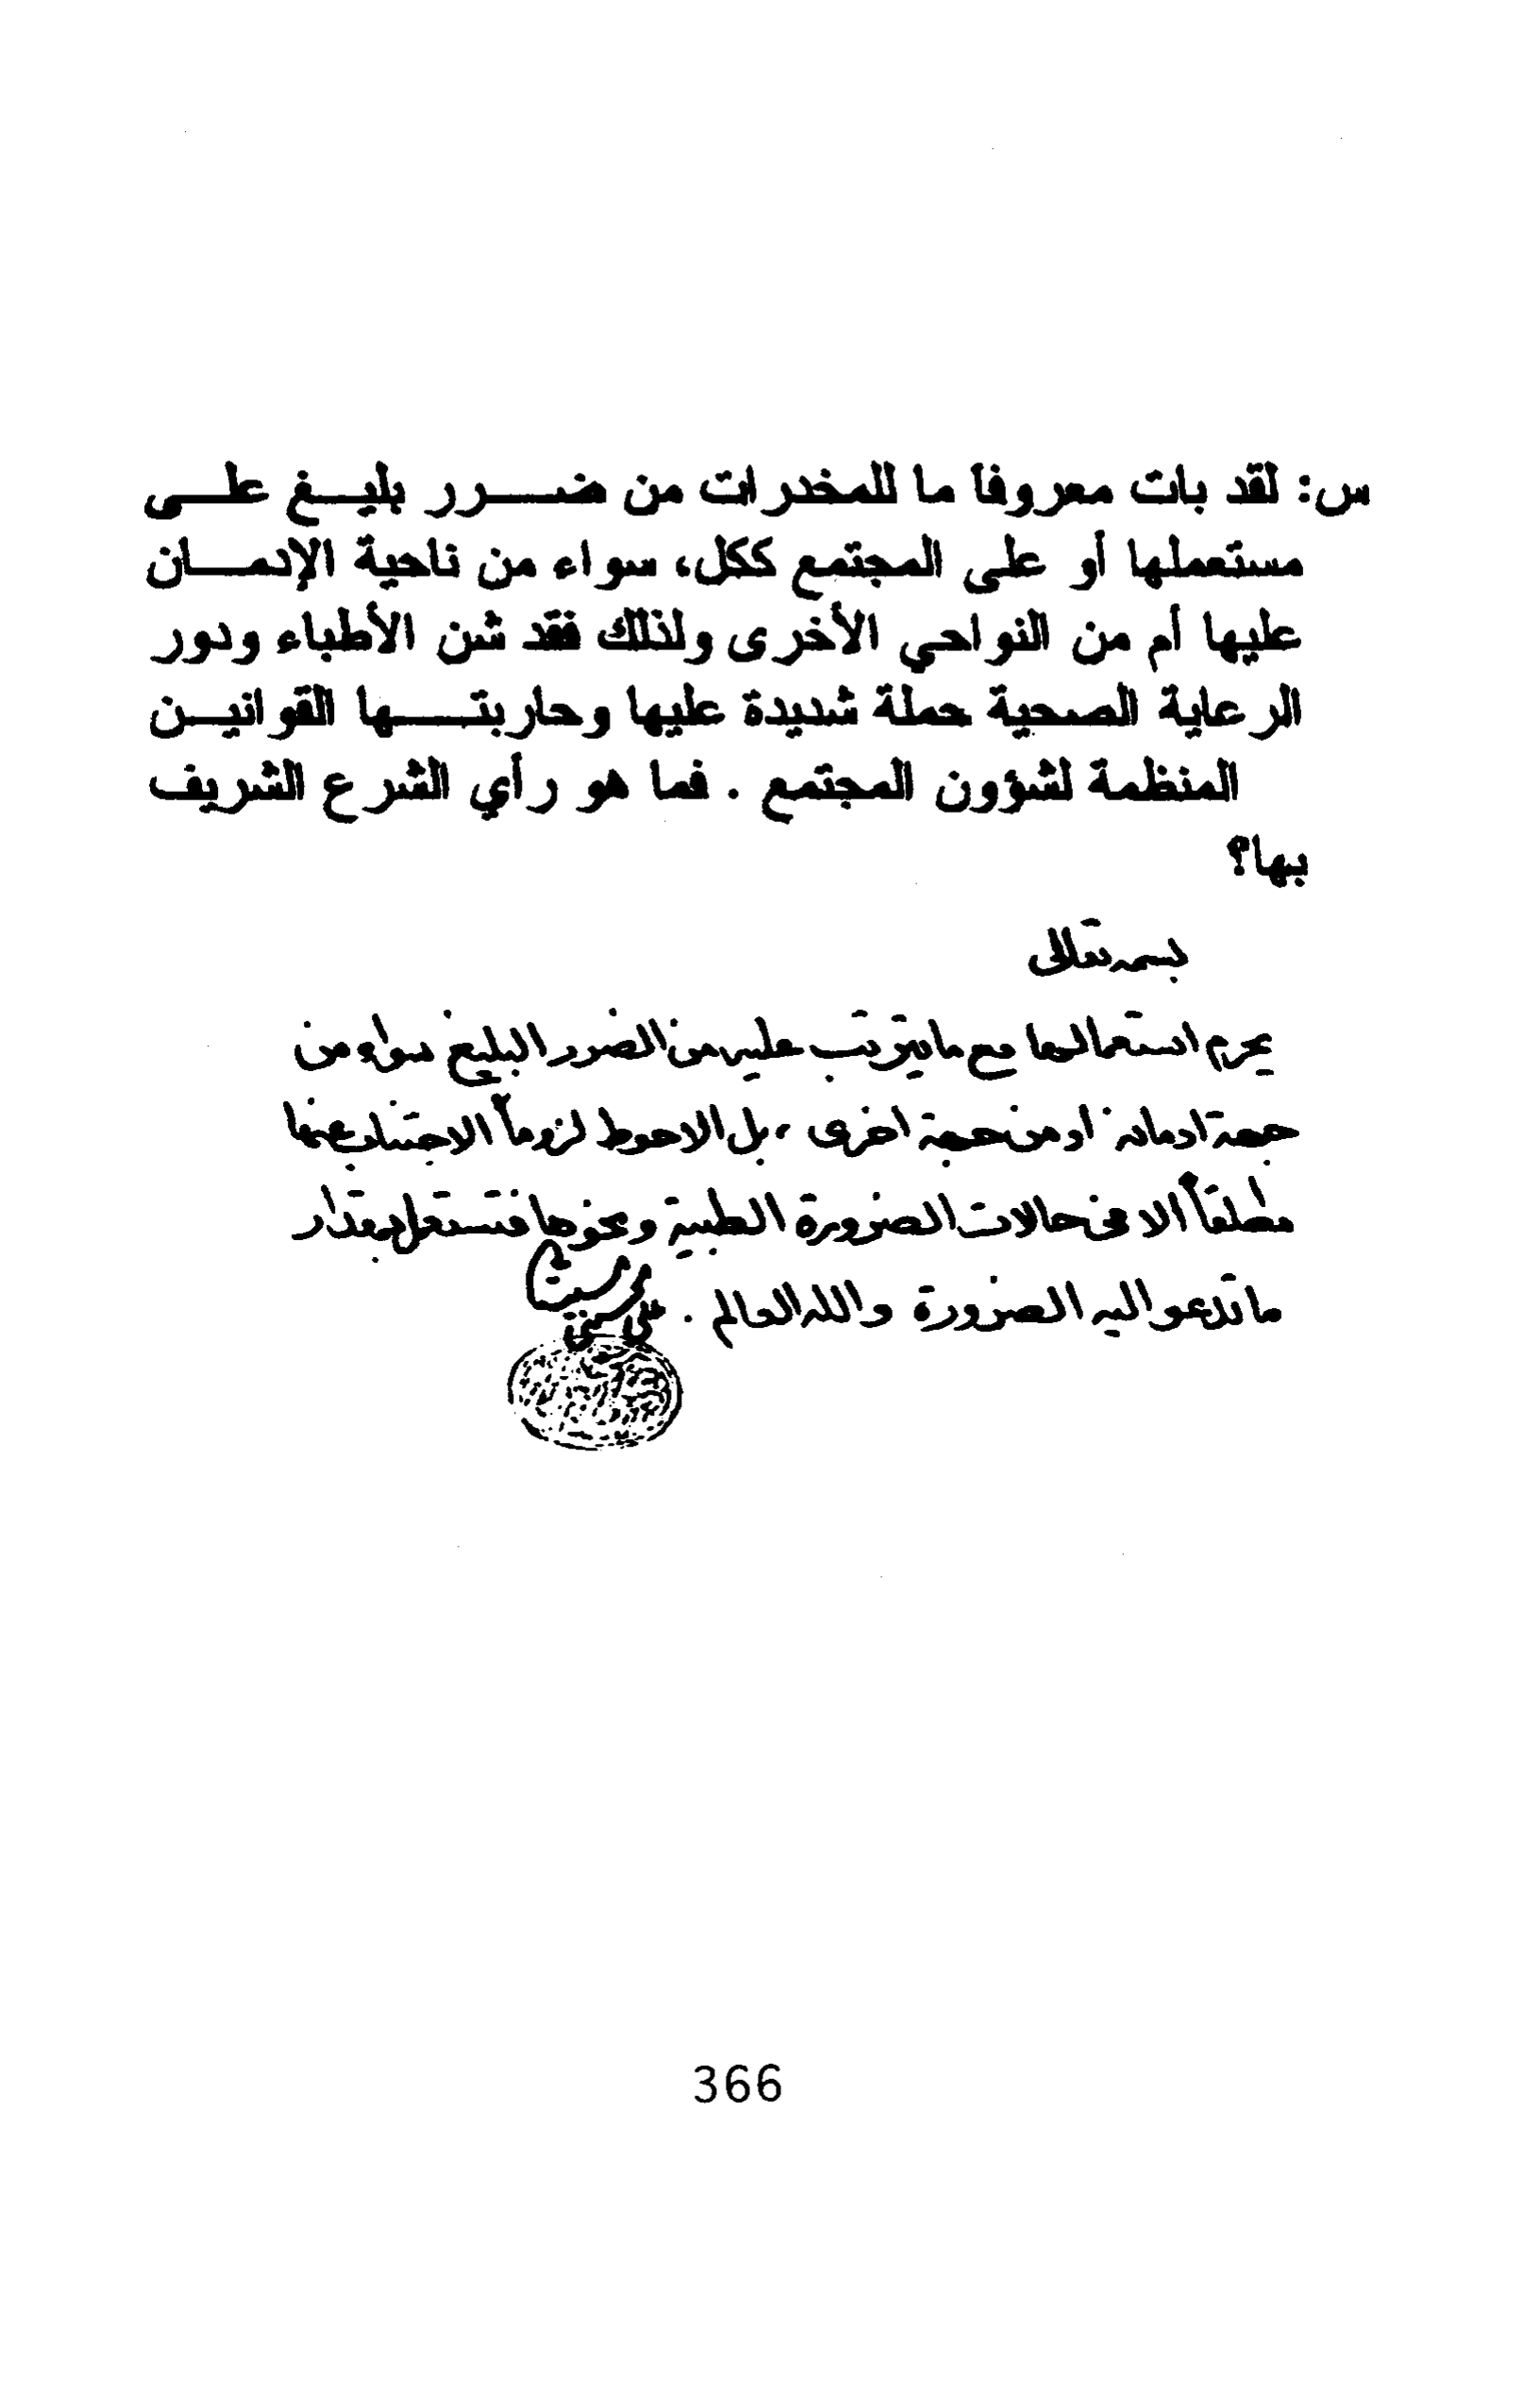 س: لقد بات معروفاً ما للمخدرات من ضرر بليغ على
مستعملها أو على المجتمع ككل، سواء من ناحية الإدمان
عليها أم من النواحي الأخرى ولذلك فقد شن الأطباء ودور
الرعاية الصحية حملة شديدة عليها وحاربتها القوانين
المنظمة لشؤون المجتمع . فما هو رأي الشرع الشريف
بها؟
بسمه تعالى
يحرم استعمالها مع ما يترتب عليه من الضرر البليغ سواء من
جهة ادمانه او من جهة اخرى ، بل الاحوط لزوماً الاجتناب عنها
مطلقاً الا في حالات الضرورة الطبية ونحوها فتستعمل بمقدار
ما تدعو اليه الضرورة والله العالم .
366